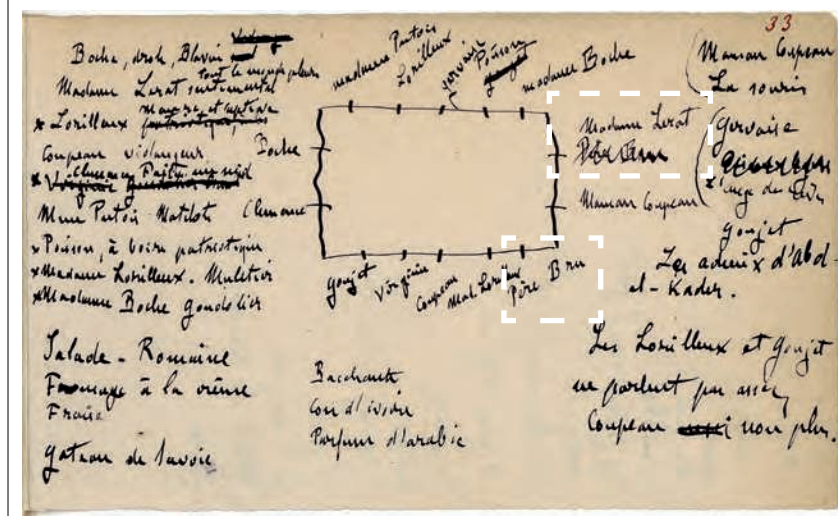 33
Boche, drole, Blavin
tout le monde pleure
Madame Lerat sentimental
x Lorilleux
Coupeau vidangeur
x Clemence Faites un nid
Mme Putois Matelots
x Poisson, à boire patriotique
x Madame Lorilleux. Muletier
x Madame Boche gondolier
Salade - Romaine
Fromage à la crème
Fraise
gateau de Savoie
madame Putois
Lorilleux
gervaise
Poisson
madame Boche
Boche
Clemence
Madame Lerat
Maman Coupeau
goujet
Virginie
Coupeau
Mad. Lorilleux
Père Bru
Bacchante
Parfum d'arabie
Maman Coupeau
La souris
Gervaise
goujet
Les adieux d'Abd-
el-Kader.
Les Lorilleux et goujet
ne parlent pas assez,
Coupeau non plus.